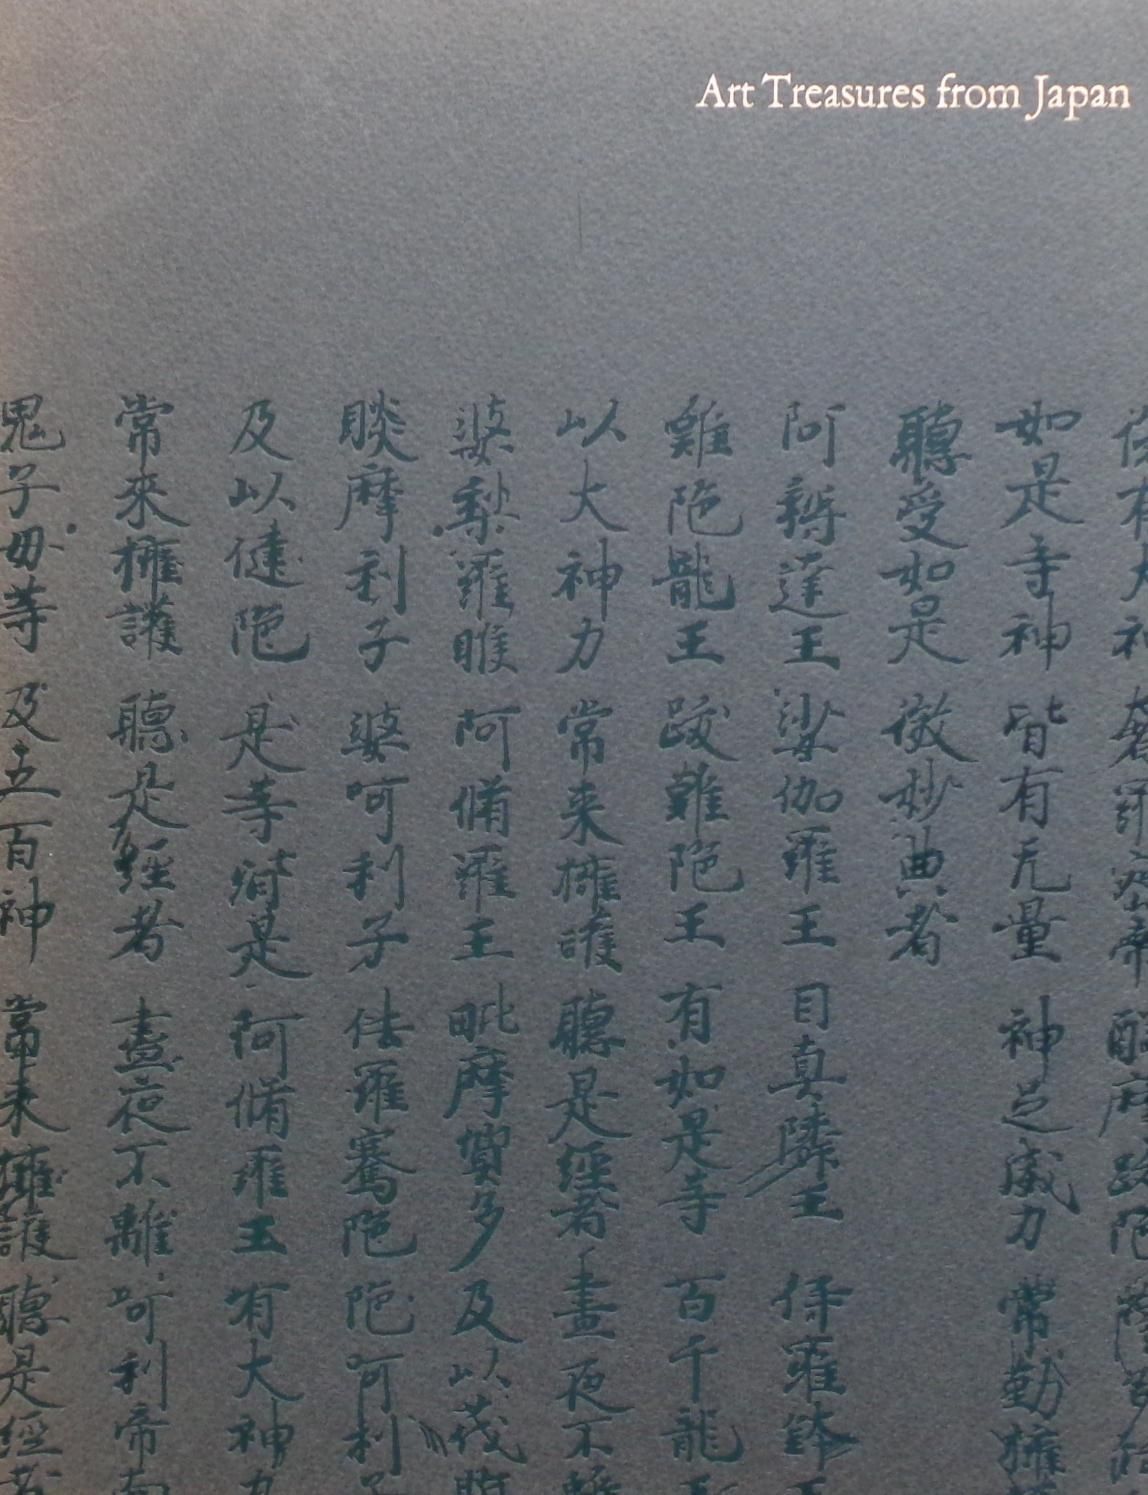 Art Treasures from Japan
如是寺神皆有无量神足威力常勤擁護
聽受如是微妙典者
阿耨達王娑伽羅王目真隣王伊羅鉢王
難陀龍王跋難陀王有如是寺百千龍王
以大神力常来擁護聽是經者晝夜不離
婆梨羅睺阿脩羅王毗摩質多及以茂脂
睒摩利子婆呵利子佉羅騫陀陀呵利子
及以健陀是等皆是阿脩羅王有大神力
常來擁護聽是經者晝夜不離呵利帝南
鬼子母等及五百神常来擁護聽是經者